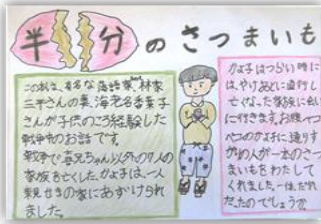 半分のさつまいも
この本は、有名な落語家、林家
三平さんの妻、海老名香葉子
さんが子供のころ経験した
戦争中のお話です。
戦争で喜兄ちゃん以外の人の
家族を亡くした、かよ子は、一人
家にあずけられ
ました。
かよ子はつらい時に
は、
亡くなった家族に会い
に行きます。お腹ペコ
ペコのかよ子に通りす
がりの人が一本のさつ
まいもをわたして
くれました。一体、だれ
だったのでしょうか